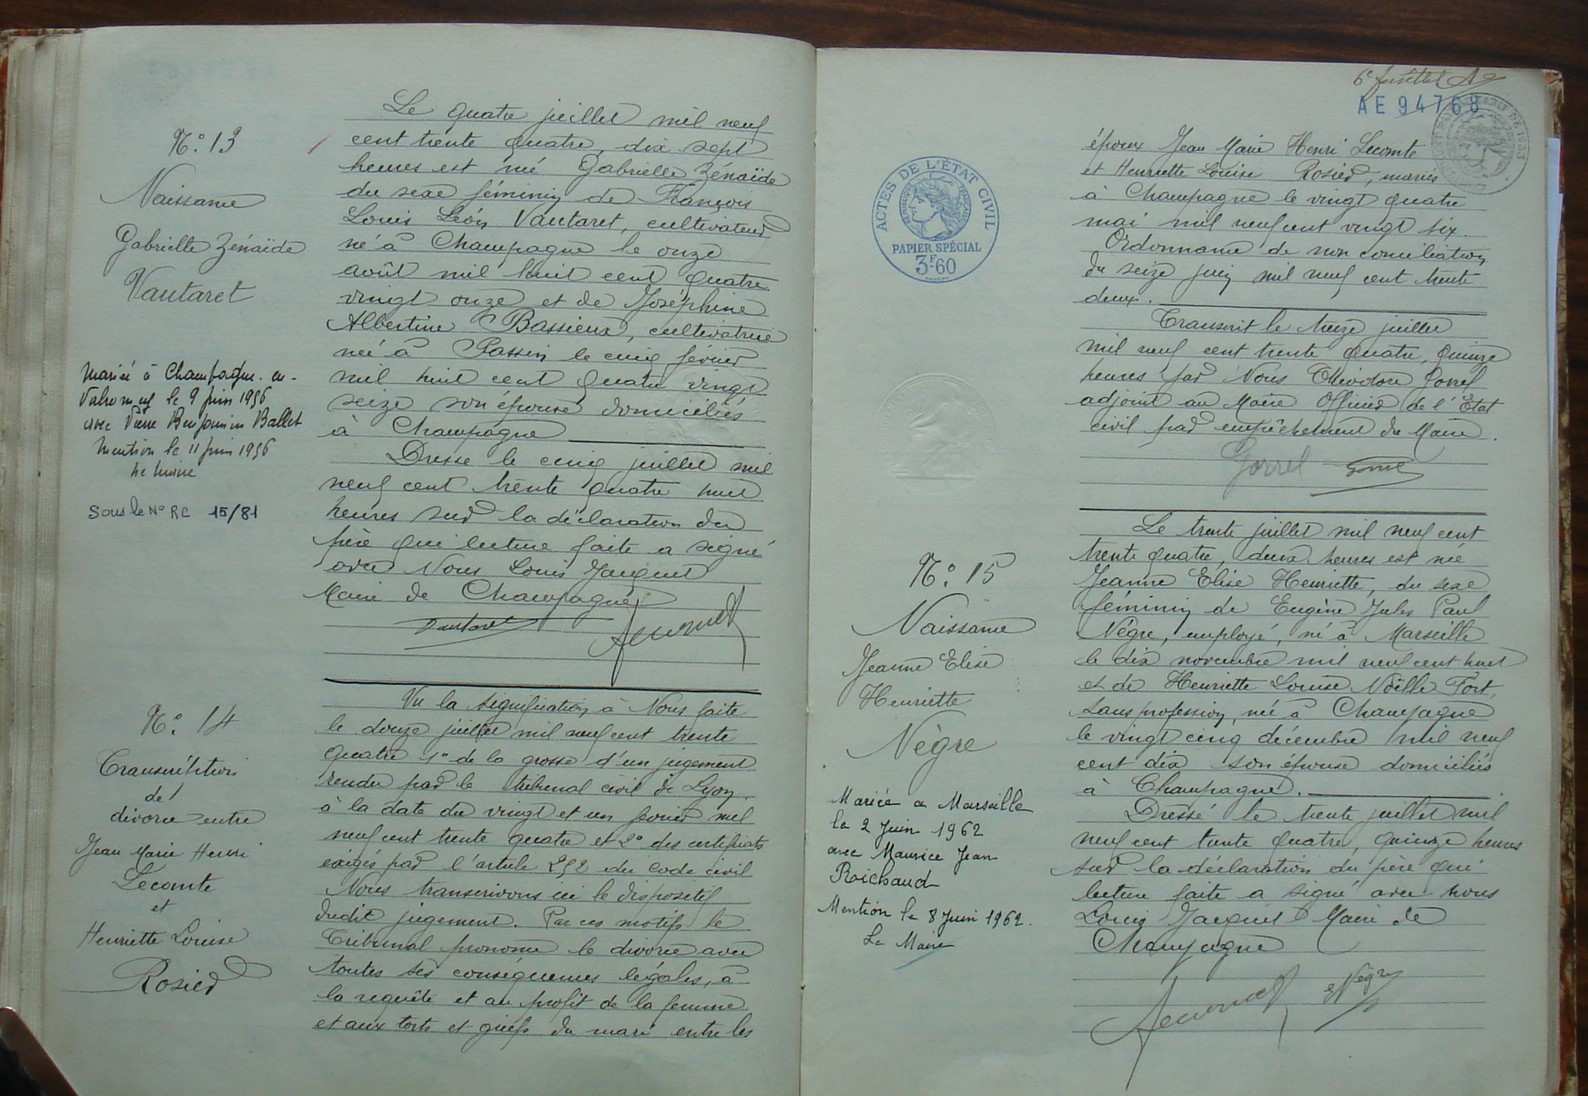 N° 13
Naissance
Gabrielle Zénaïde
Vautaret
Marié à Champagne-en-
Valromey le 9 juin 1956
avec Pierre Benjamin Ballet
Mention le 11 juin 1956
Le Maire
Sous le N° RC 15/81
Le quatre juillet mil neuf
cent trente quatre, dix sept
heures est née Gabrielle Zénaïde
du sexe féminin de François
Louis Léon Vautaret, cultivateur
né à Champagne le onze
août mil huit cent quatre
vingt onze et de Joséphine
Albertine Bassieux, cultivatrice
née à Passin le cinq février
mil huit cent quatre vingt
seize son épouse domiciliés
à Champagne
Dressé le cinq juillet mil
neuf cent trente quatre huit
heures sur la déclaration du
père qui lecture faite a signé
avec Nous Louis Jacquet
Maire de Champagne
Vautaret
N° 14
Transcription
de
divorce entre
Jean Marie Henri
Lecomte
et
Henriette Louise
Rosier
Vu la signification à Nous faite
le douze juillet mil neuf cent trente
quatre 1° de la grosse d'un jugement
rendu par le tribunal civil de Lyon
à la date du vingt et un février mil
neuf cent trente quatre et 2° des certificats
exigés par l'article 252 du Code civil
Nous transcrivons ici le dispositif
dudit jugement. Par ces motifs le
Tribunal prononce le divorce avec
toutes ses conséquences légales, à
la requête et au profit de la femme
et aux torts et griefs du mari entre les
6e feuillet
AE 94768
ACTES DE L'ÉTAT CIVIL
PAPIER SPÉCIAL
3F60
époux Jean Marie Henri Lecomte
et Henriette Louise Rosier, mariés
à Champagne le vingt quatre
mai mil neuf cent vingt six
Ordonnance de non conciliation
du seize juin mil neuf cent trente
deux.
Transcrit le treize juillet
mil neuf cent trente quatre, quinze
heures par Nous Théodore Gorrel
adjoint au Maire Officier de l'Etat
civil par empêchement du Maire.
Gorrel
N° 15
Naissance
Jeanne Elise
Henriette
Nègre
Mariée à Marseille
le 2 Juin 1962
avec Maurice Jean
Roichaud
Mention le 8 Juin 1962.
Le Maire
Le trente juillet mil neuf cent
trente quatre, deux heures est née
Jeanne Elise Henriette, du sexe
féminin de Eugène Jules Paul
Nègre, employé, né à Marseille
le dix novembre mil neuf cent huit
et de Henriette Louise Noëlle Fort,
sans profession, née à Champagne
le vingt cinq décembre mil neuf
cent dix son épouse domiciliés
à Champagne.
Dressé le trente juillet mil
neuf cent trente quatre, quinze heures
sur la déclaration du père qui
lecture faite a signé avec nous
Louis Jacquet Maire de
Champagne
Nègre